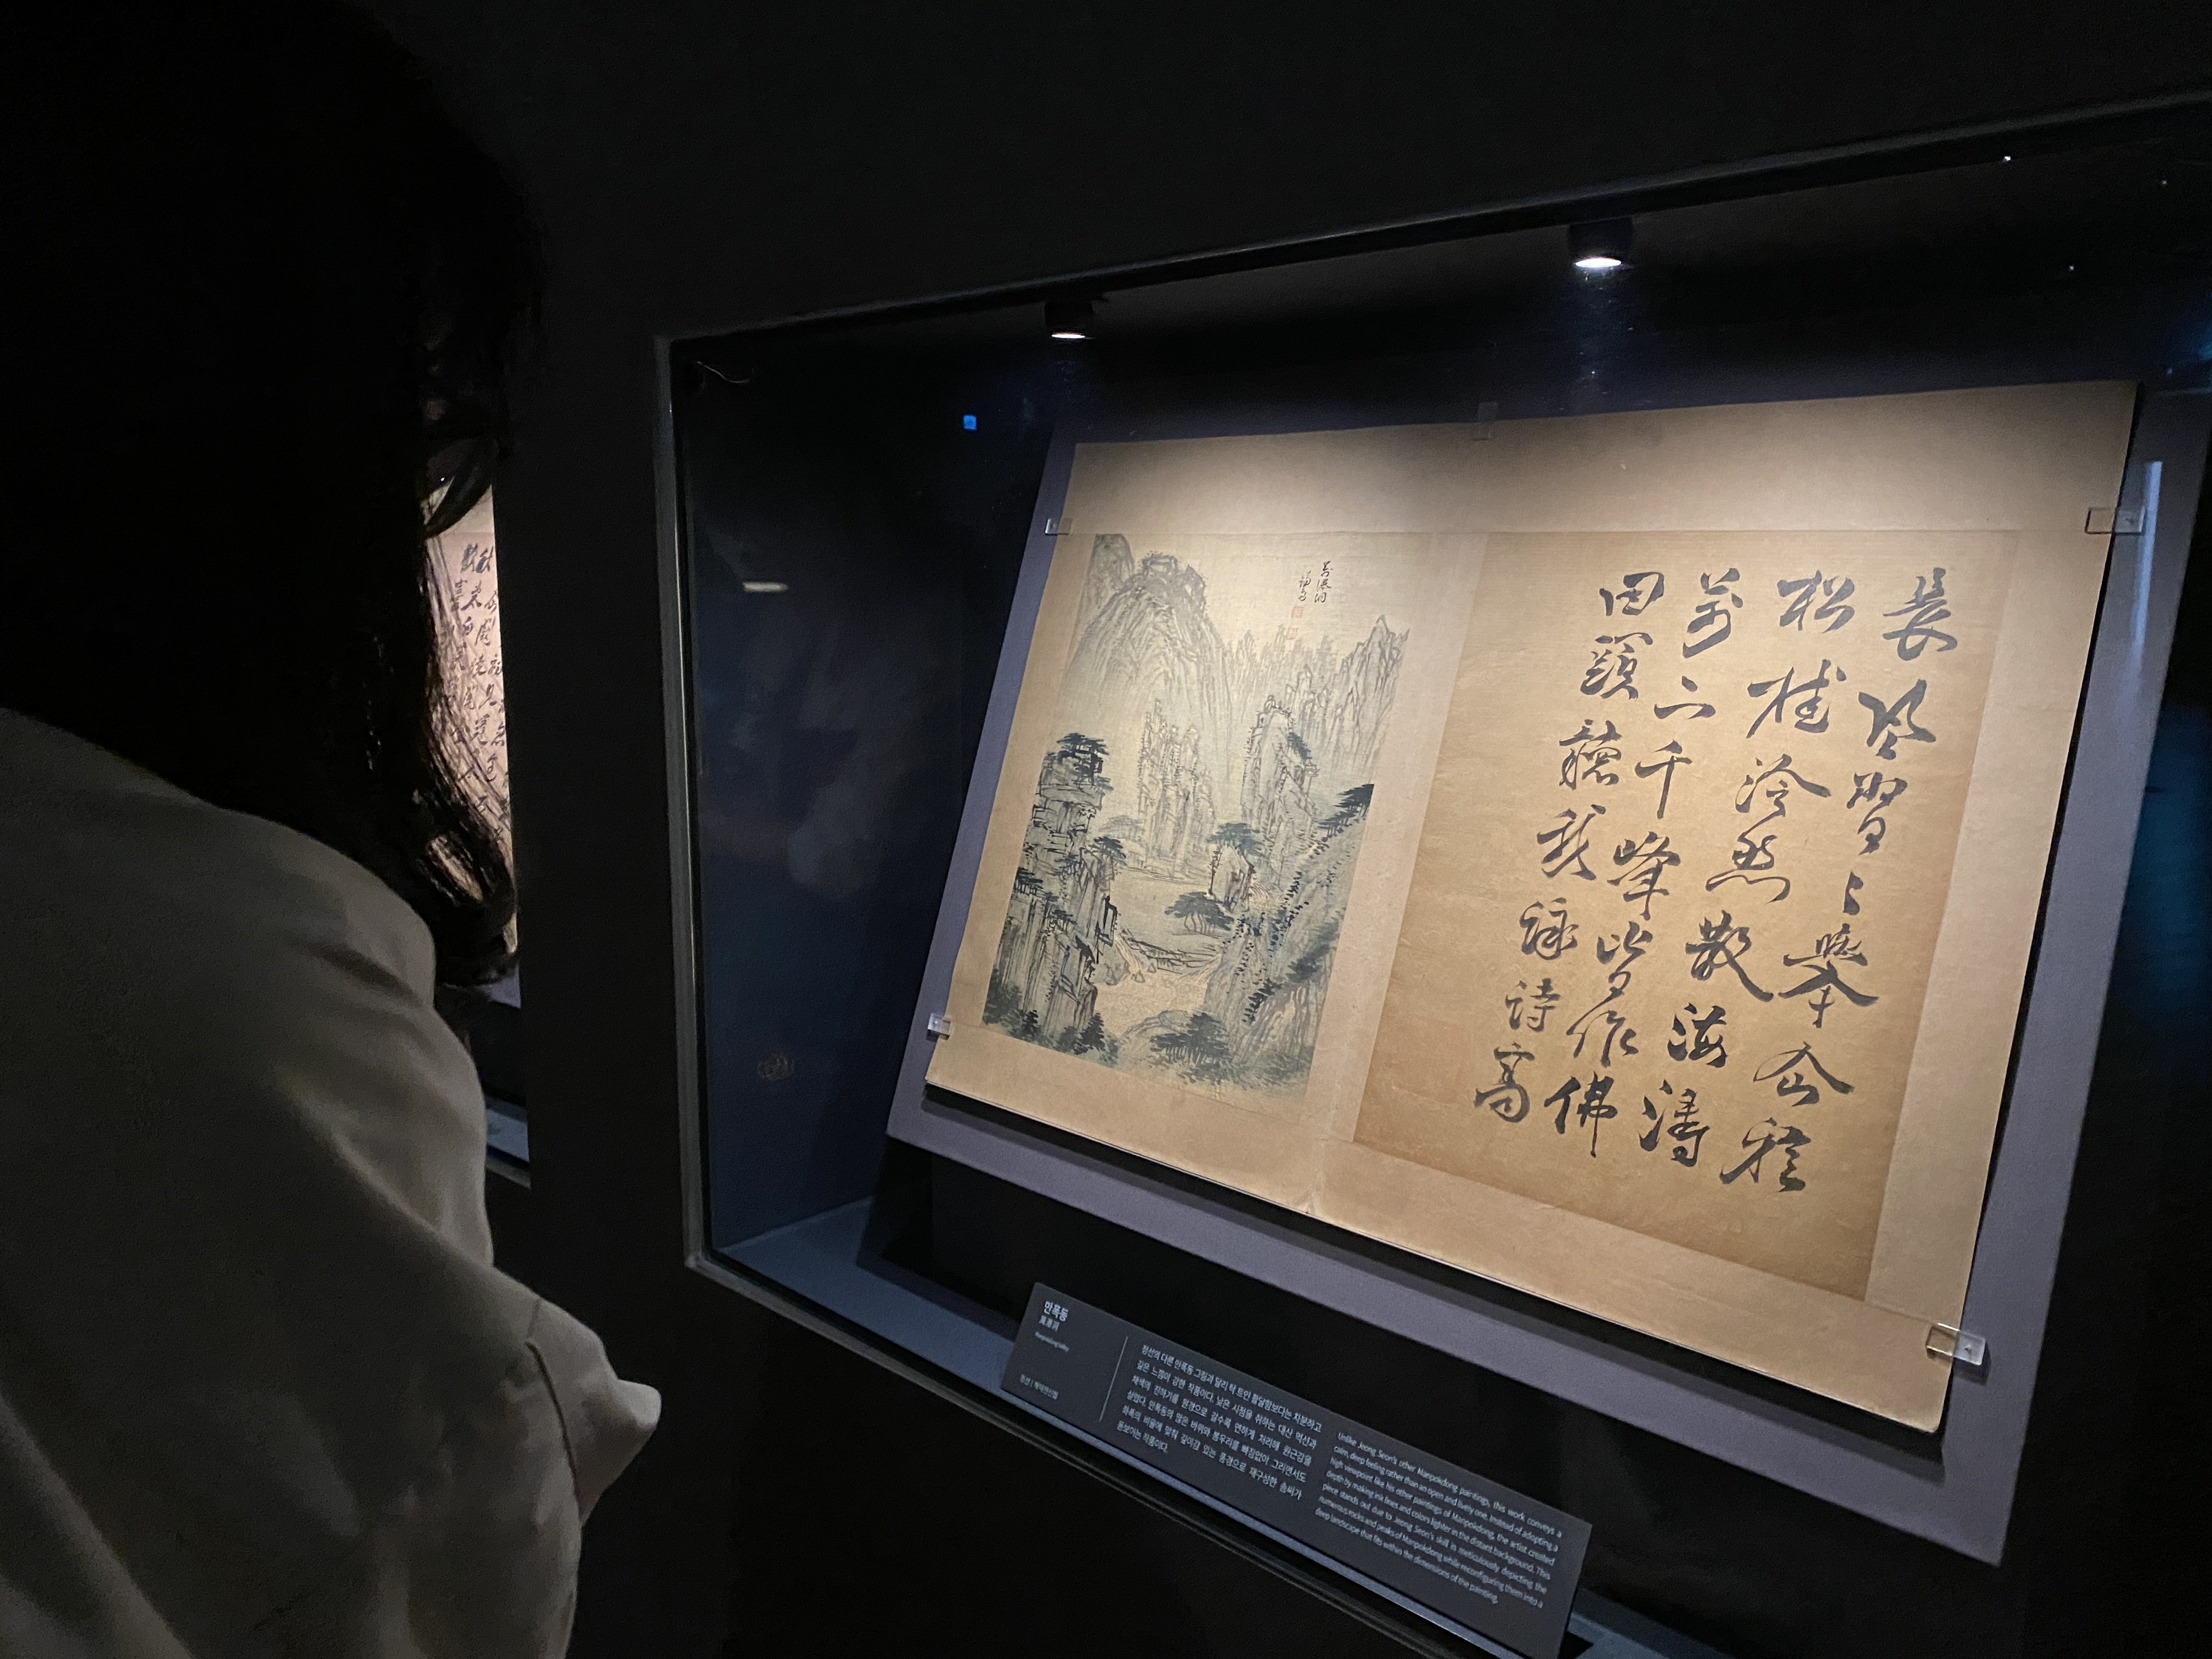 萬瀑洞
謙齋
長風習〻擧仚袍
松桂泠然散海濤
萬二千峰皆作佛
回頭聽我詠詩高
만폭동
萬瀑洞
Manpokdong Valley
정선 | 해악전신첩
정선의 다른 만폭동 그림과 달리 확 트인 활달함보다는 차분하고
깊은 느낌이 강한 작품이다. 낮은 시점을 취하는 대신 먹선과
채색의 진하기를 원경으로 갈수록 연하게 처리해 원근감을
살렸다. 만폭동의 많은 바위와 봉우리를 빠짐없이 그리면서도
화폭의 비율에 맞춰 깊이감 있는 풍경으로 재구성한 솜씨가
돋보이는 작품이다.
Unlike Jeong Seon's other Manpokdong paintings, this work conveys a
calm, deep feeling rather than an open and lively one. Instead of adopting a
high viewpoint like his other paintings of Manpokdong, the artist created
depth by making ink lines and colors lighter in the distant background. This
piece stands out due to Jeong Seon's skill in meticulously depicting the
numerous rocks and peaks of Manpokdong while reconfiguring them into a
deep landscape that fits within the dimensions of the painting.